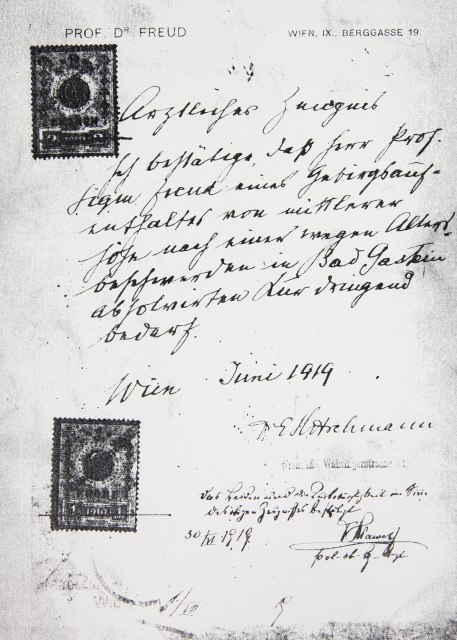 PROF. Dr FREUD
WIEN, IX., BERGGASSE 19.
Ärztliches Zeugnis
Ich bestätige, daß Herr Prof.
Sigm. Freud eines Gebirgsauf-
enthaltes von mittlerer
Höhe nach einer wegen Alters-
beschwerden in Bad Gastein
absolvierten Kur dringend
bedarf.
Wien Juni 1919
Wien, IX. Währingerstrasse
Das Leiden und die
bestätigt
30/VI 1919